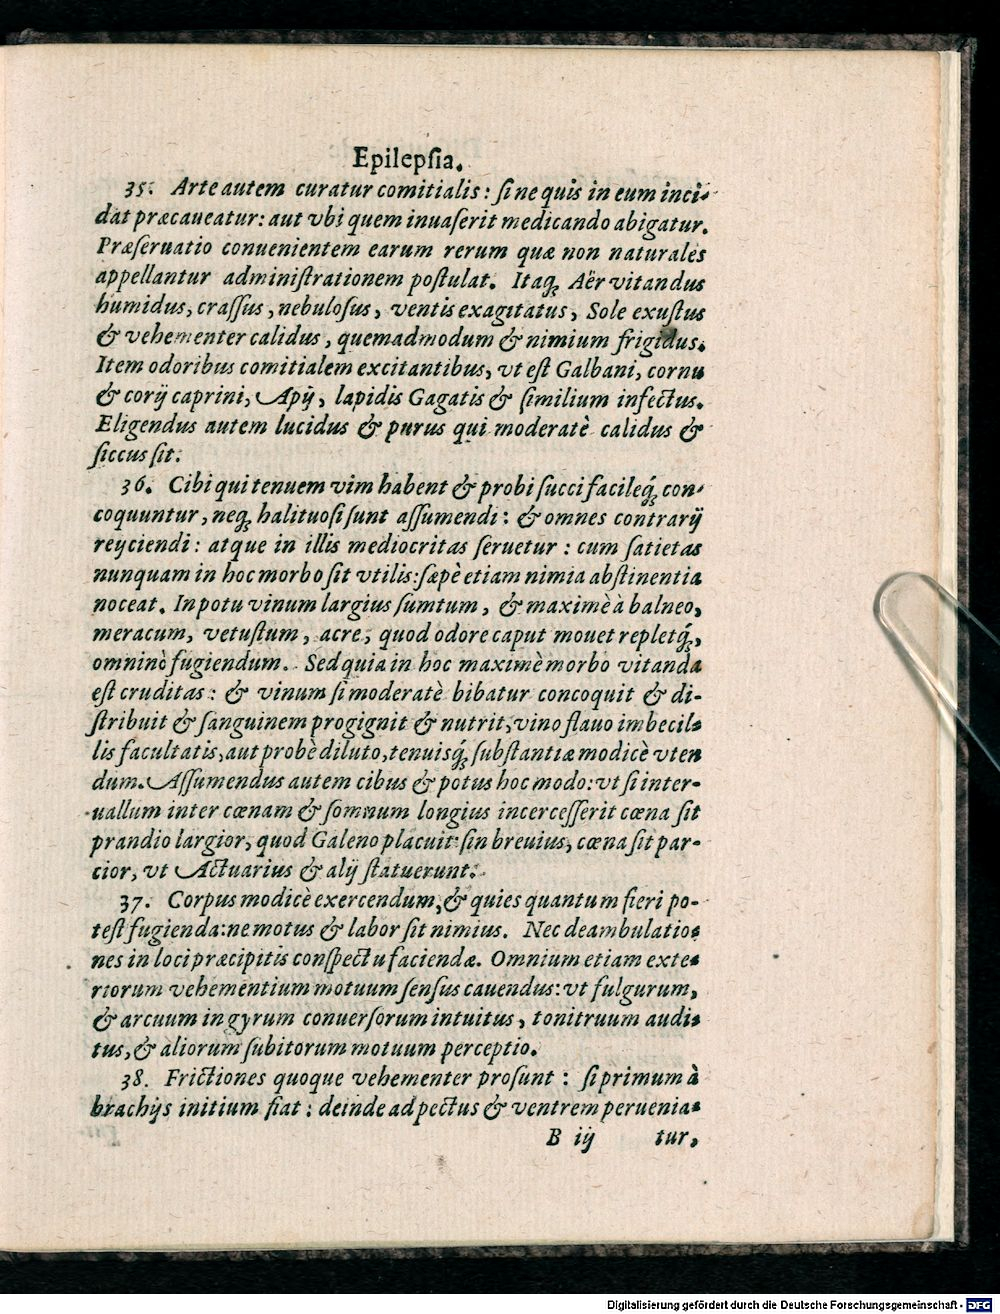 Epilepſia.
35. Arte autem curatur comitialis: ſi ne quis in eum inci-
dat præcaueatur: aut vbi quem inuaſerit medicando abigatur.
Præſeruatio conuenientem earum rerum quæ non naturales
appellantur adminiſtrationem poſtulat. Itaq; Aër vitandus
humidus, craſſus, nebuloſus, ventis exagitatus, Sole exuſtus
& vehementer calidus, quemadmodum & nimium frigidus.
Item odoribus comitialem excitantibus, vt eſt Galbani, cornu
& corij caprini, Apij, lapidis Gagatis & ſimilium infectus.
Eligendus autem lucidus & purus qui moderatè calidus &
ſiccus ſit.
36. Cibi qui tenuem vim habent & probi ſucci facileq́; con-
coquuntur, neq; halituoſi ſunt aſſumendi: & omnes contrarij
reijciendi: atque in illis mediocritas ſeruetur: cum ſatietas
nunquam in hoc morbo ſit vtilis: ſæpè etiam nimia abſtinentia
noceat. In potu vinum largius ſumtum, & maximè à balneo,
meracum, vetuſtum, acre, quod odore caput mouet repletq́;,
omninò fugiendum. Sed quia in hoc maximè morbo vitanda
eſt cruditas: & vinum ſi moderatè bibatur concoquit & di-
ſtribuit & ſanguinem progignit & nutrit, vino flauo imbecil-
lis facultatis, aut probè diluto, tenuisq́; ſubſtantiæ modicè vten
dum. Aſſumendus autem cibus & potus hoc modo: vt ſi inter-
uallum inter cœnam & ſomnum longius incerceſſerit cœna ſit
prandio largior, quod Galeno placuit: ſin breuius, cœna ſit par-
cior, vt Actuarius & alij ſtatuerunt.
37. Corpus modicè exercendum, & quies quantum fieri po-
teſt fugienda: ne motus & labor ſit nimius. Nec deambulatio-
nes in loci præcipitis conſpectu faciendæ. Omnium etiam exte-
riorum vehementium motuum ſenſus cauendus: vt fulgurum,
& arcuum in gyrum conuerſorum intuitus, tonitruum audi-
tus, & aliorum ſubitorum motuum perceptio.
38. Frictiones quoque vehementer proſunt: ſi primum à
brachijs initium fiat: deinde ad pectus & ventrem peruenia-
B iij tur,
Digitalisierung gefördert durch die Deutsche Forschungsgemeinschaft - DFG